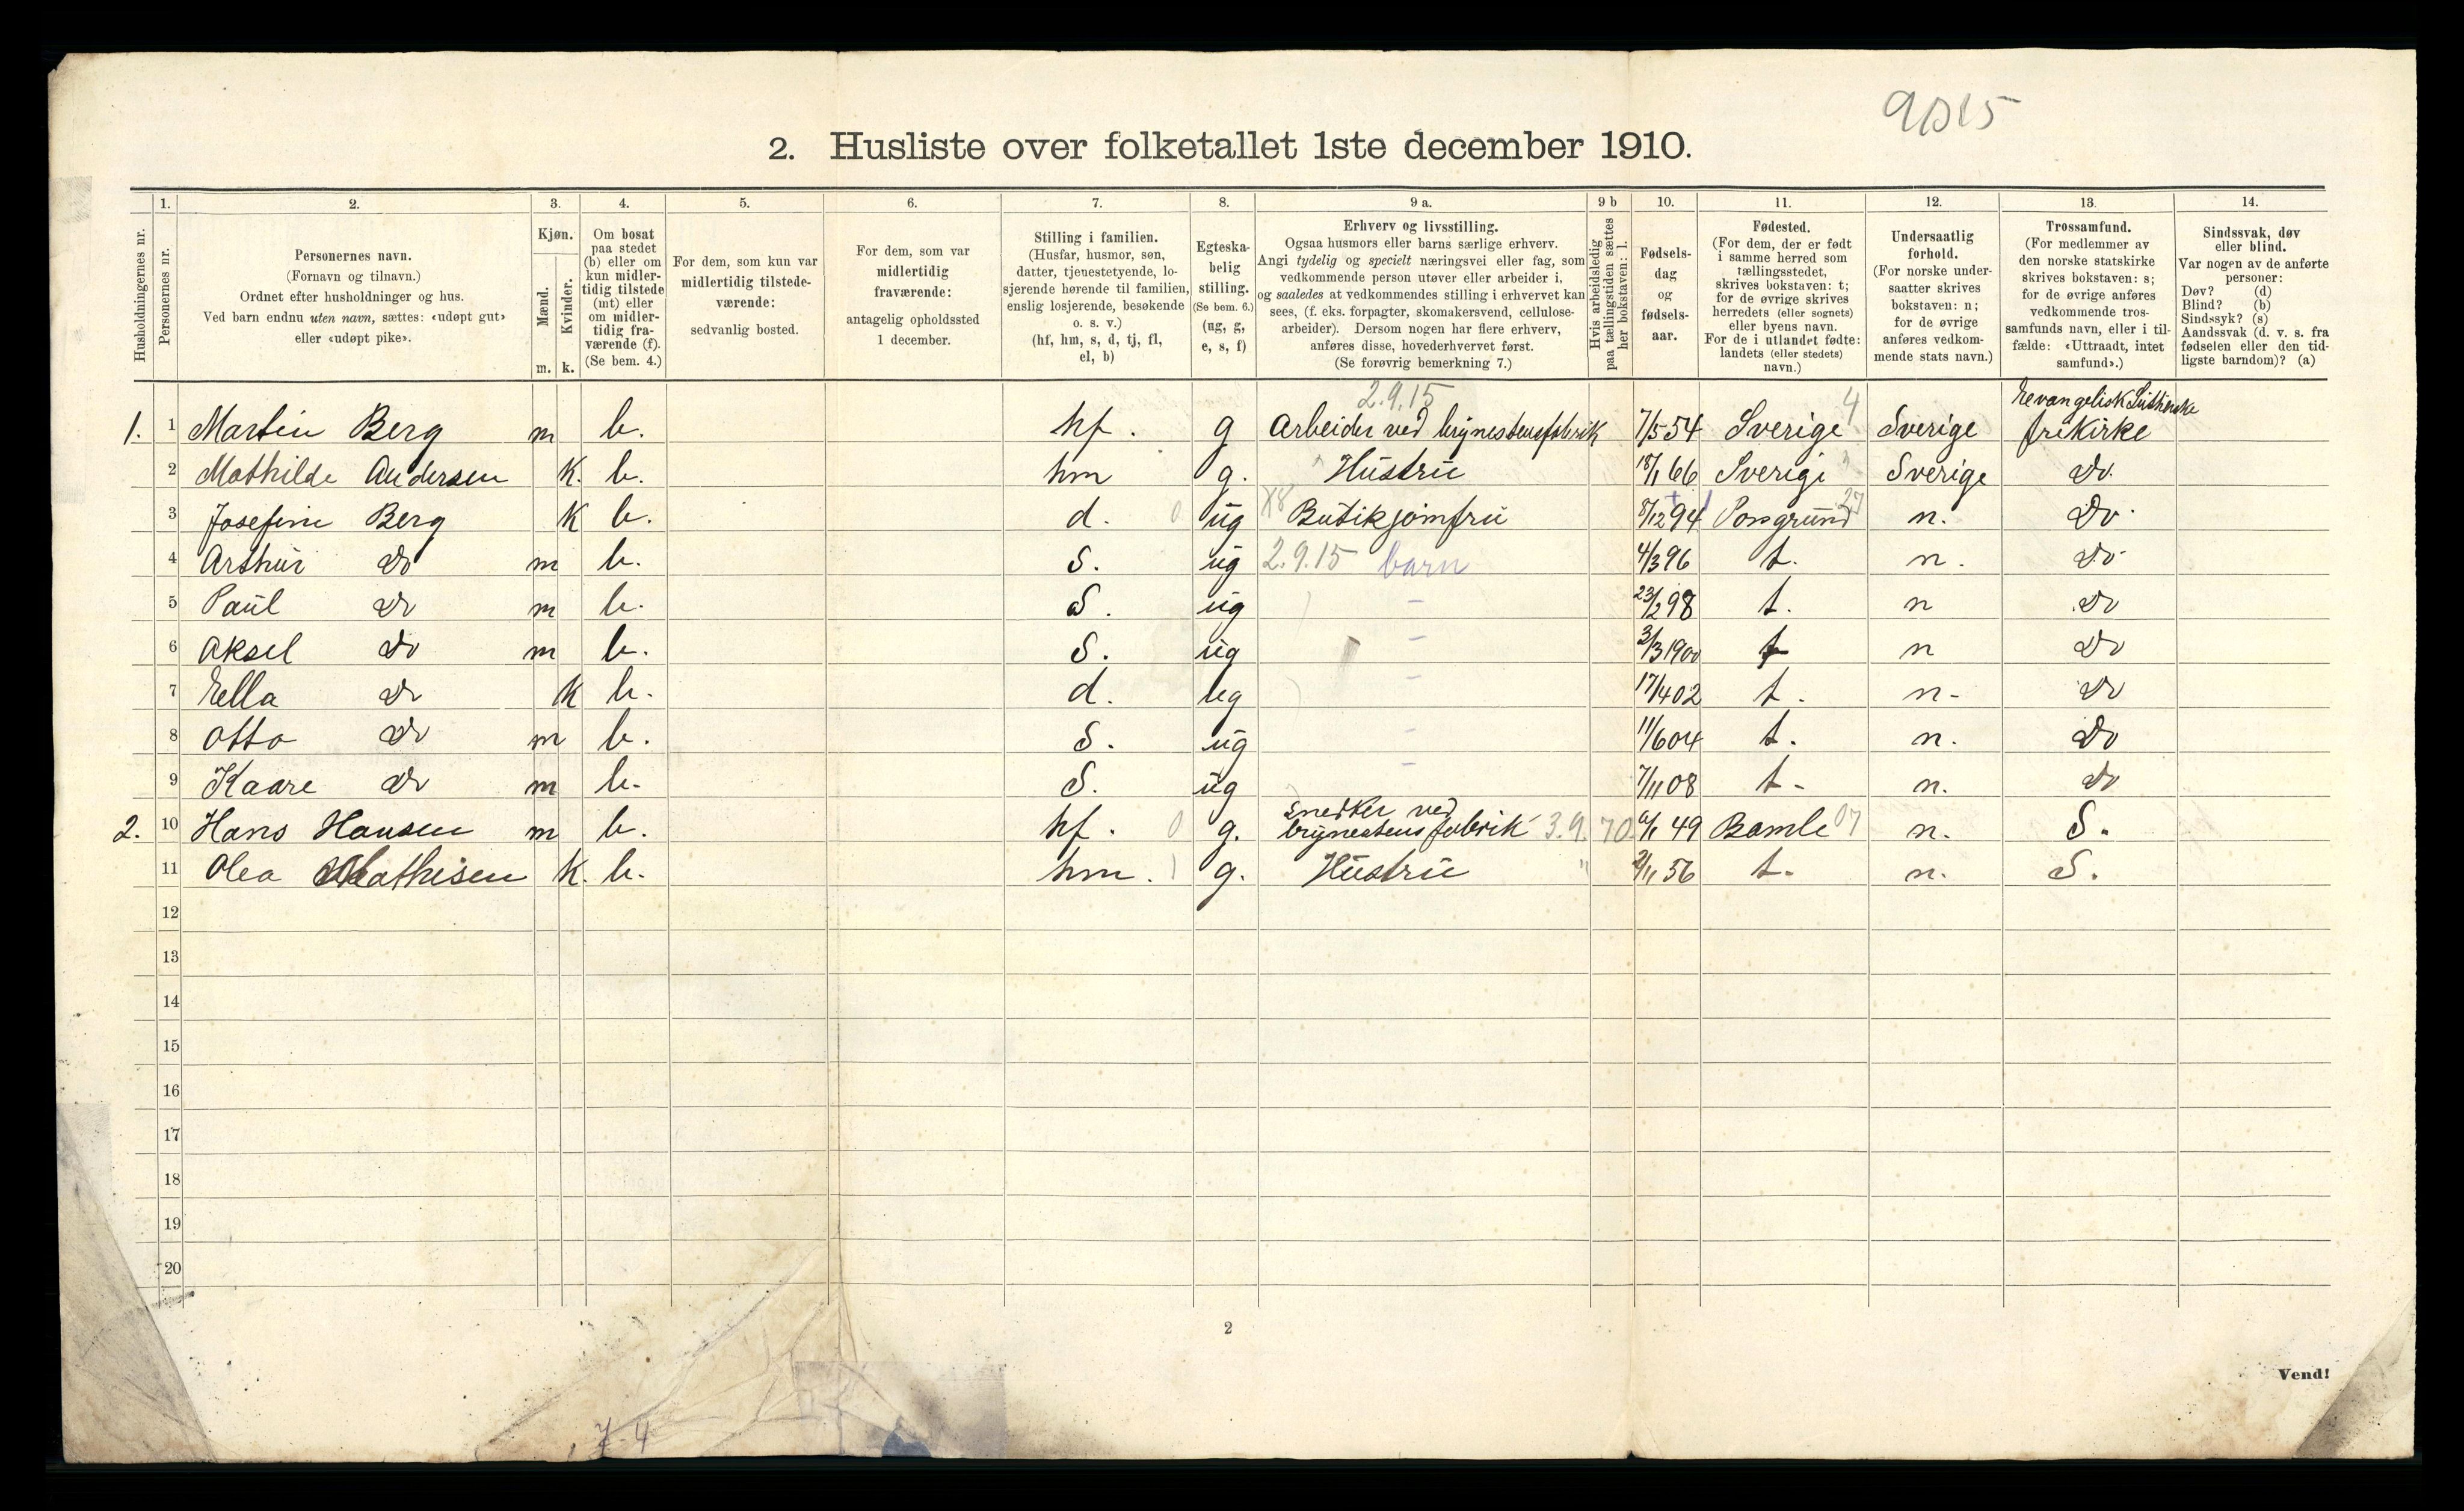 9015
2. Husliste over folketallet 1ste december 1910.
Husholdningernes nr.
1. Personernes nr.
2. Personernes navn.
(Fornavn og tilnavn.)
Ordnet efter husholdninger og hus.
Ved barn endnu uten navn, sættes: «udøpt gut»
eller «udøpt pike».
3. Kjøn.
Mænd. m.
Kvinder. k.
4. Om bosat
paa stedet
(b) eller om
kun midler-
tidig tilstede
(mt) eller
om midler-
tidig fra-
værende (f).
(Se bem. 4.)
5. For dem, som kun var
midlertidig tilstede-
værende:
sedvanlig bosted.
6. For dem, som var
midlertidig
fraværende:
antagelig opholdssted
1 december.
7. Stilling i familien.
(Husfar, husmor, søn,
datter, tjenestetyende, lo-
sjerende hørende til familien,
enslig losjerende, besøkende
o. s. v.)
(hf, hm, s, d, tj, fl,
el, b)
8. Egteska-
belig
stilling.
(Se bem. 6.)
(ug, g,
e, s, f)
9 a. Erhverv og livsstilling.
Ogsaa husmors eller barns særlige erhverv.
Angi tydelig og specielt næringsvei eller fag, som
vedkommende person utøver eller arbeider i,
og saaledes at vedkommendes stilling i erhvervet kan
sees, (f. eks. forpagter, skomakersvend, cellulose-
arbeider). Dersom nogen har flere erhverv,
anføres disse, hovederhvervet først.
(Se forøvrig bemerkning 7.)
9 b Hvis arbeidsledig
paa tællingstiden sættes
her bokstaven: l.
10. Fødsels-
dag
og
fødsels-
aar.
11. Fødested.
(For dem, der er født
i samme herred som
tællingsstedet,
skrives bokstaven: t;
for de øvrige skrives
herredets (eller sognets)
eller byens navn.
For de i utlandet fødte:
landets (eller stedets)
navn.)
12. Undersaatlig
forhold.
(For norske under-
saatter skrives
bokstaven: n;
for de øvrige
anføres vedkom-
mende stats navn.)
13. Trossamfund.
(For medlemmer av
den norske statskirke
skrives bokstaven: s;
for de øvrige anføres
vedkommende tros-
samfunds navn, eller i til-
fælde: «Uttraadt, intet
samfund».)
14. Sindssvak, døv
eller blind.
Var nogen av de anførte
personer:
Døv? (d)
Blind? (b)
Sindssyk? (s)
Aandssvak (d. v. s. fra
fødselen eller den tid-
ligste barndom)? (a)
2.9.15 4 Evangelisk Lutherske
1. 1 Martin Berg m b. hf. g Arbeider ved brynestensfabrik 7/5 54 Sverige Sverige frikirke
2 Mathilde Andersen K. b. hm g. Hustru 18/1 66 Sverige Sverige Do.
3 Josefine Berg K b. d. 0 ug X8 Butikjomfru 8/12 94 Porsgrund 27 n. Do.
4 Arthur Do m b. S. ug 2.9.15 barn 4/3 96 t. n. Do
5 Paul Do m b. S. ug - 23/2 98 t. n Do
6 Aksel Do m b. S. ug - 3/3 1900 t n Do
7 Ella Do K b. d. ug - 17/4 02 t. n. Do
8 Otto Do m b. S. ug - 11/6 04 t. n. Do
9 Kaare Do m b. S. ug - 7/11 08 t. n. Do
Snedker ved
2. 10 Hans Hansen m b. hf. 0 g. brynestens fabrik 3.9.70 6/1 49 Bamle 07 n. S.
11 Olea Mathisen K. b. hm. g. Hustru " 2/11 56 t. n. S.
12
13
14
15
16
17
18
19
20
2
Vend!
7-4